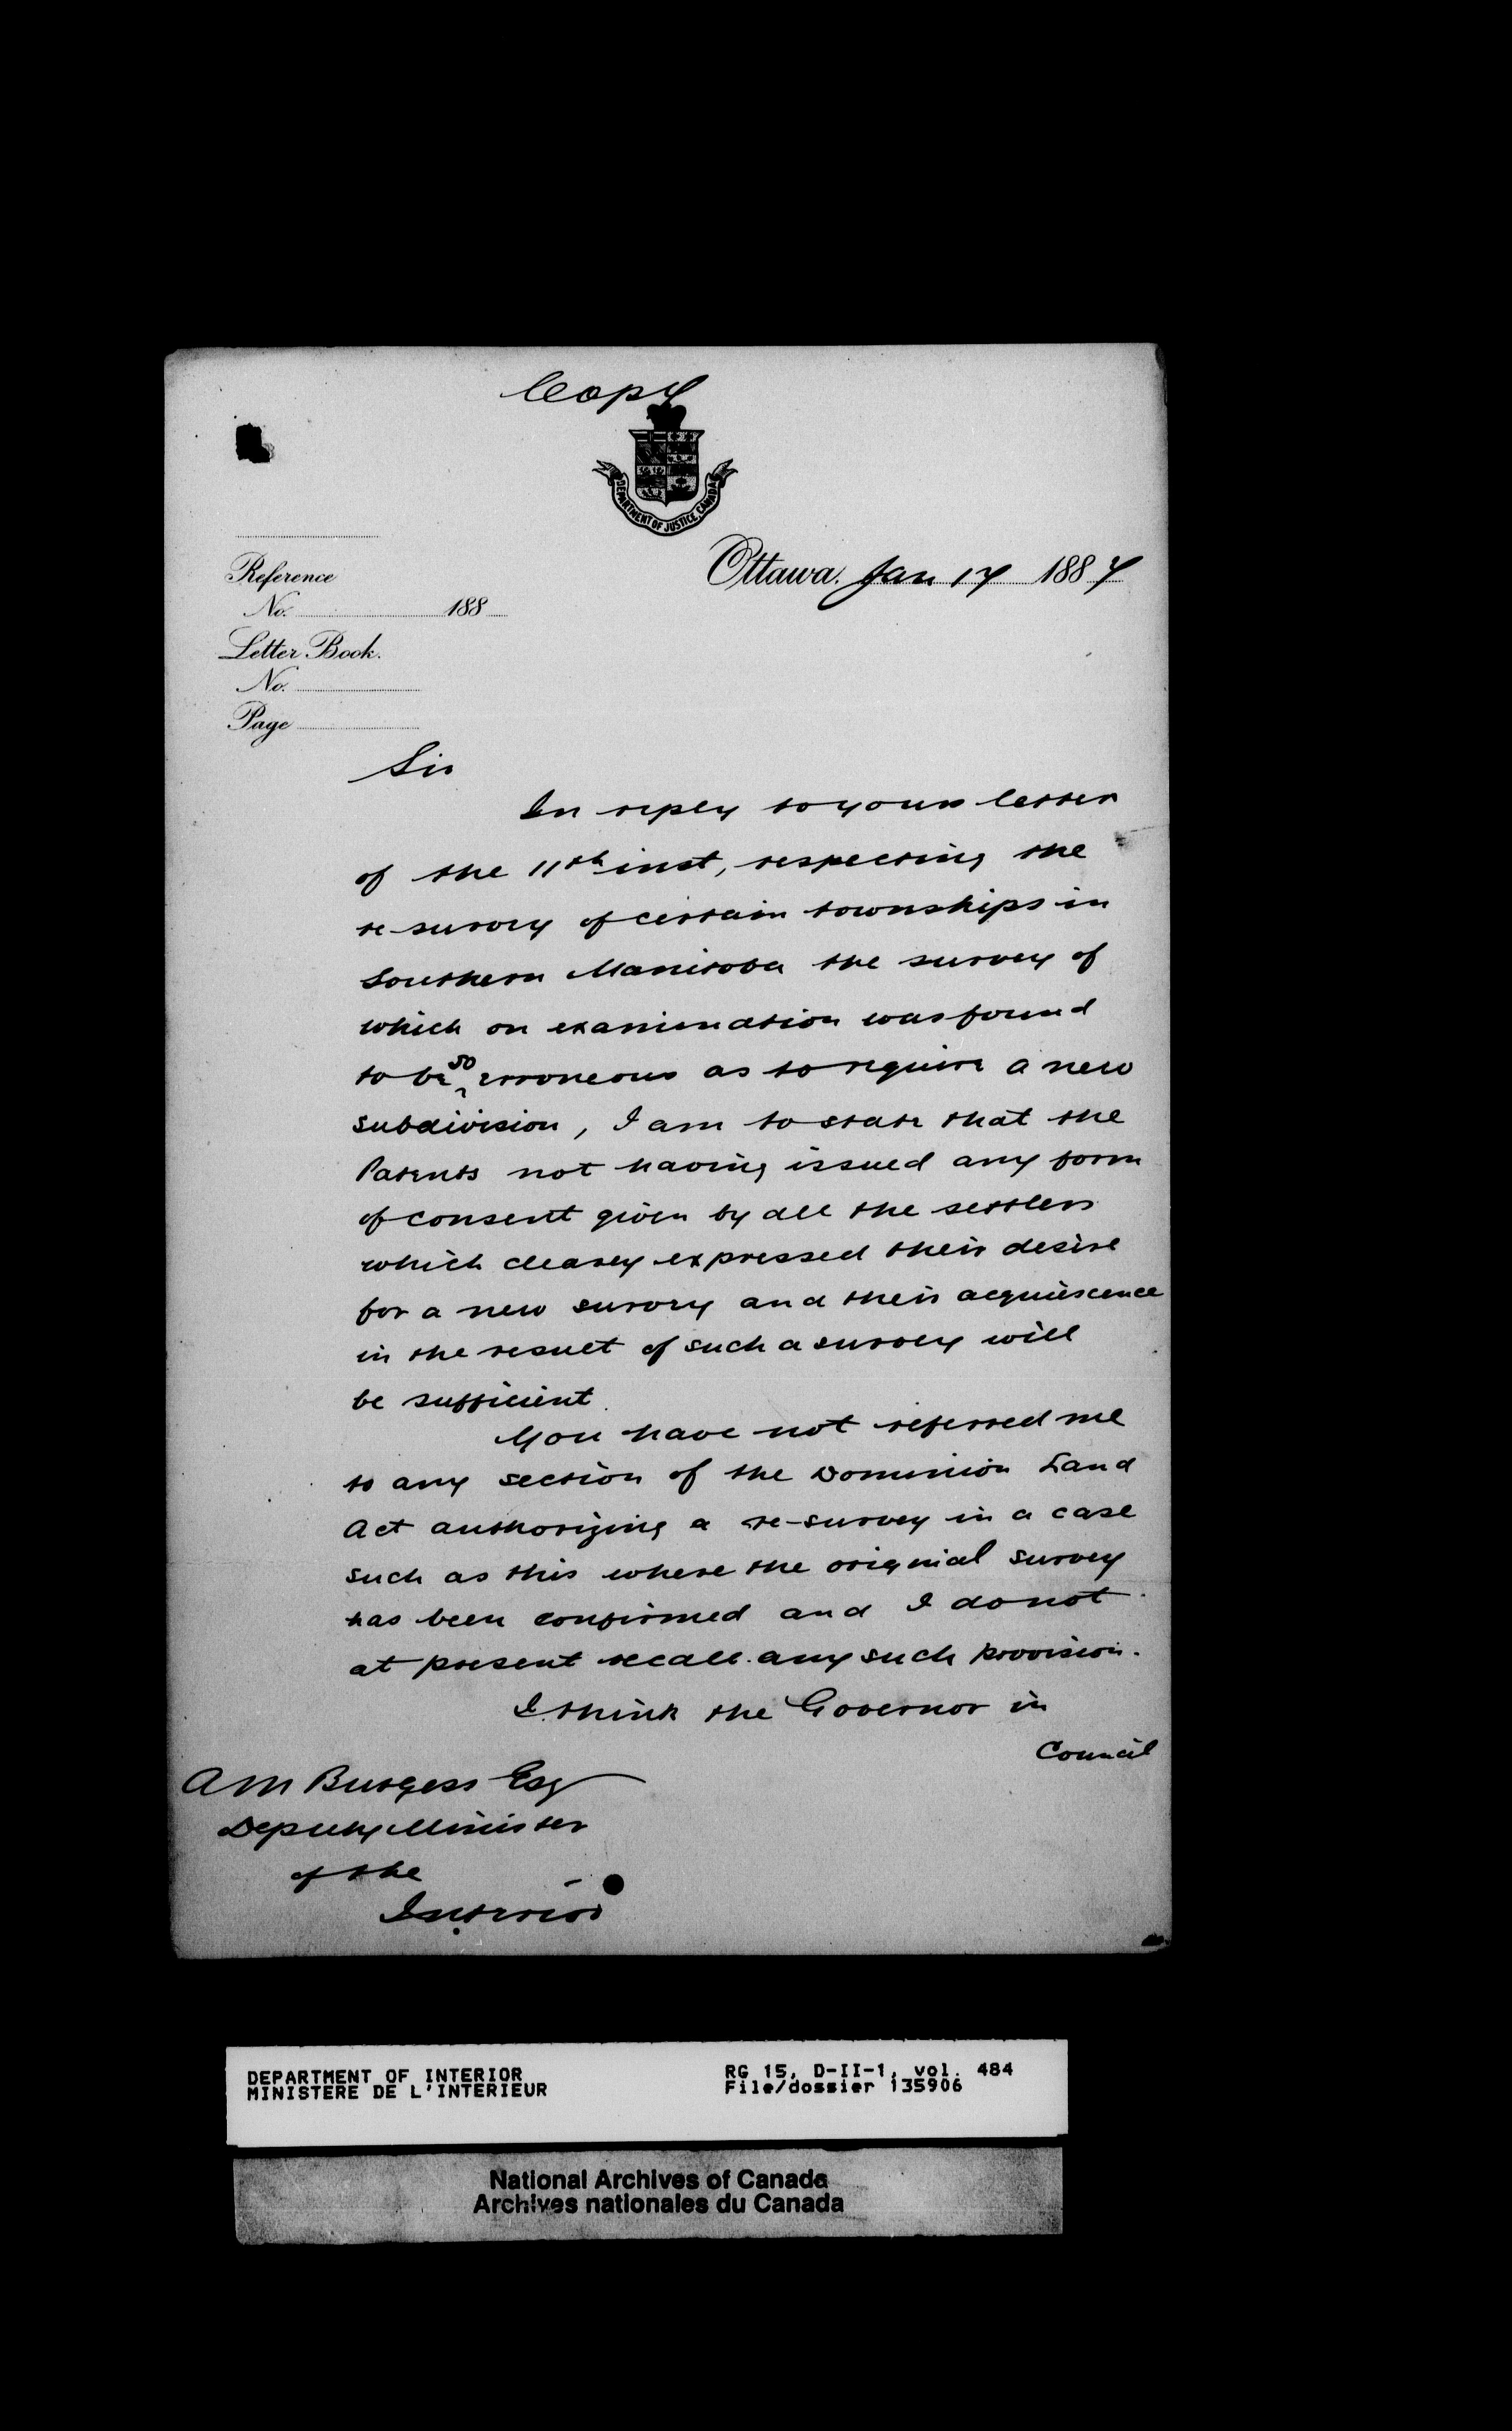 Copy
DEPARTMENT OF JUSTICE, CANADA
Ottawa. Jan 17 1887
Reference
No. 188
Letter Book.
No.
Page
Sir
In reply to your letter
of the 11th inst, respecting the
re-survey of certain townships in
Southern Manitoba the survey of
which on examination was found
to be so erroneous as to require a new
subdivision, I am to state that the
Patents not having issued any form
of consent given by all the settlers
which clearly expressed their desire
for a new survey and their acquiescence
in the result of such a survey will
be sufficient.
You have not referred me
to any section of the Dominion Land
Act authorizing a re-survey in a case
such as this where the original survey
has been confirmed and I do not
at present recall any such provision.
I think the Governor in
Council
A M Burgess Esq
Deputy Minister
of the
Interior
DEPARTMENT OF INTERIOR
MINISTERE DE L'INTERIEUR
RG 15, D-II-1, vol. 484
File/dossier 135906
National Archives of Canada
Archives nationales du Canada